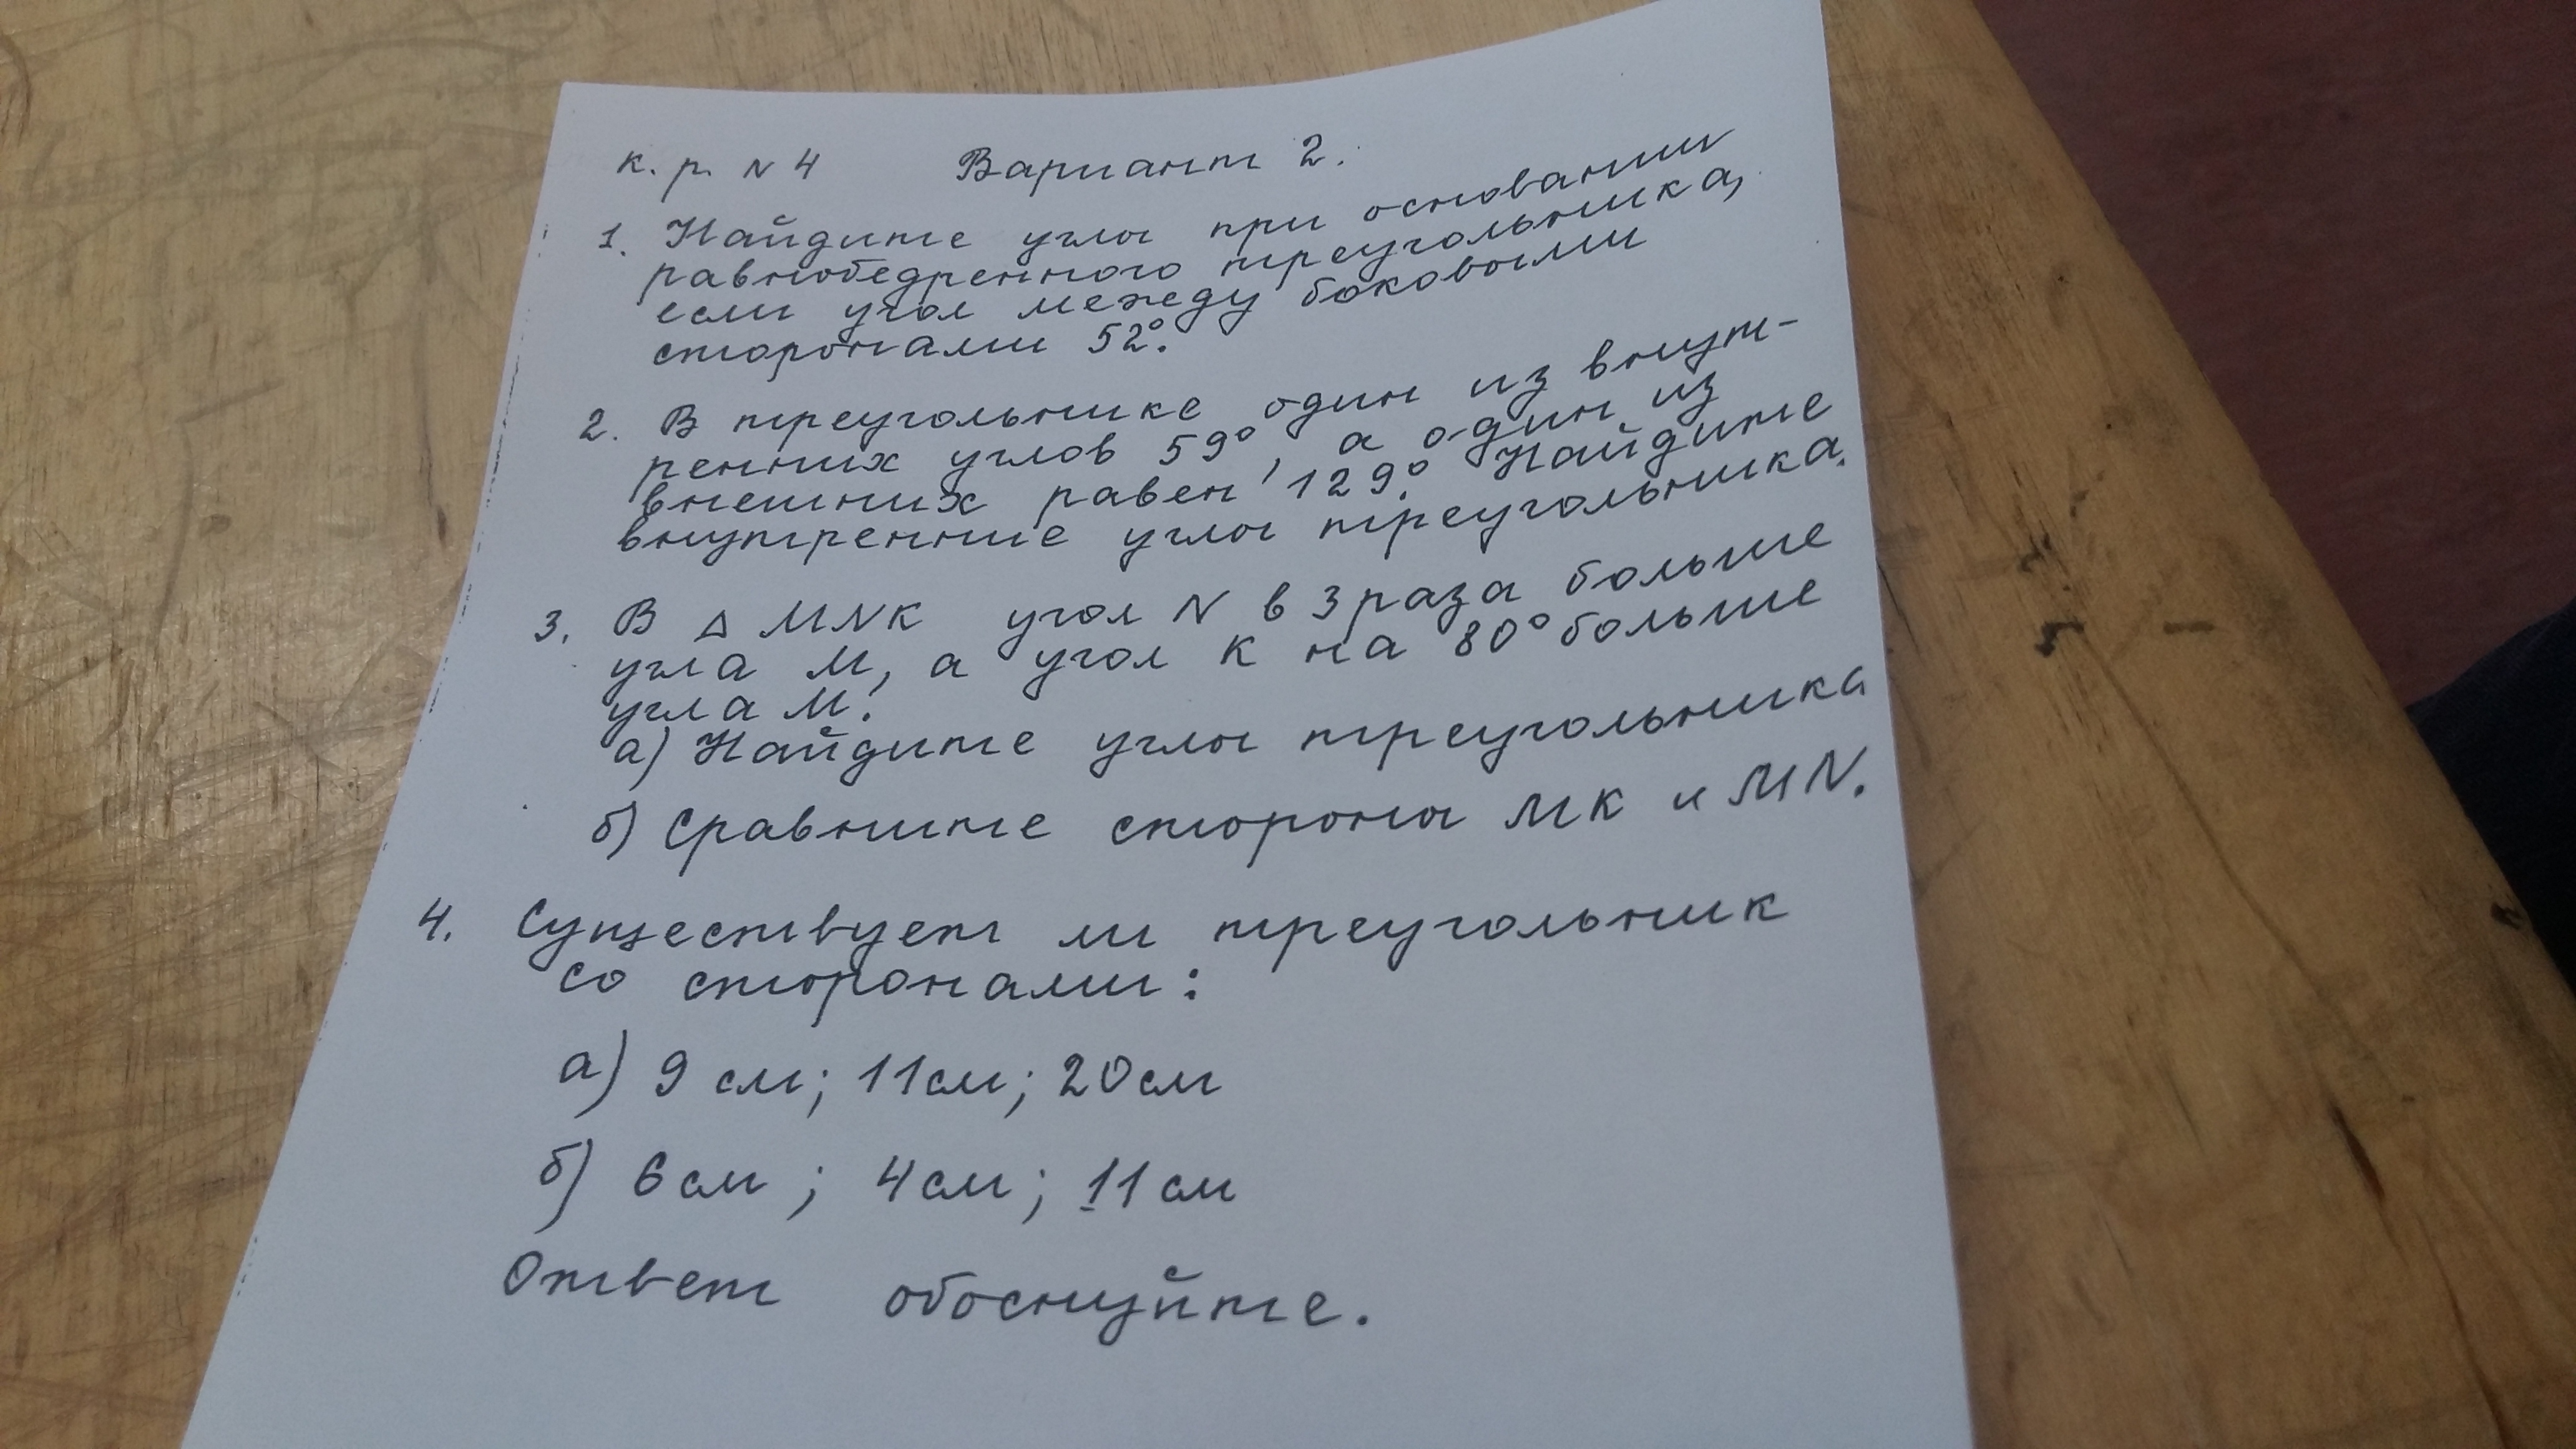 к. р. N 4 Вариант 2.
1. Найдите углы при основании
равнобедренного треугольника,
если угол между боковыми
сторонами 52°.
2. В треугольнике один из внут-
ренних углов 59°, а один из
внешних равен 129°. Найдите
внутренние углы треугольника.
3. В △ MNK угол N в 3 раза больше
угла M, а угол K на 80° больше
угла M.
а) Найдите углы треугольника
б) Сравните стороны MK и MN.
4. Существует ли треугольник
со сторонами:
а) 9 см; 11 см; 20 см
б) 6 см; 4 см; 11 см
Ответ обоснуйте.